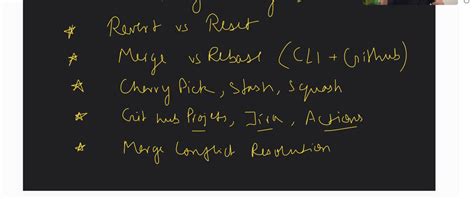 * Revert vs Reset
* Merge vs Rebase (CLI + Github)
* Cherry Pick, Stash, Squash
* Git hub Projets, Jira, Actions
* Merge Conflict Resolution